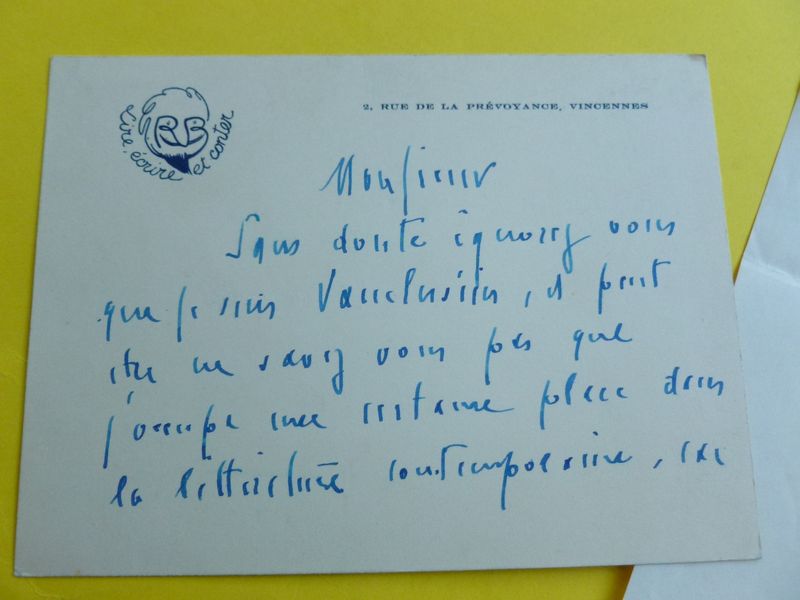 Lire, écrire et conter
RB
2, RUE DE LA PRÉVOYANCE, VINCENNES
Monsieur
Sans doute ignorez vous
que je suis Vauclusien, et peut
etre ne savez vous pas que
j'occupe une certaine place dans
la littérature contemporaine, car